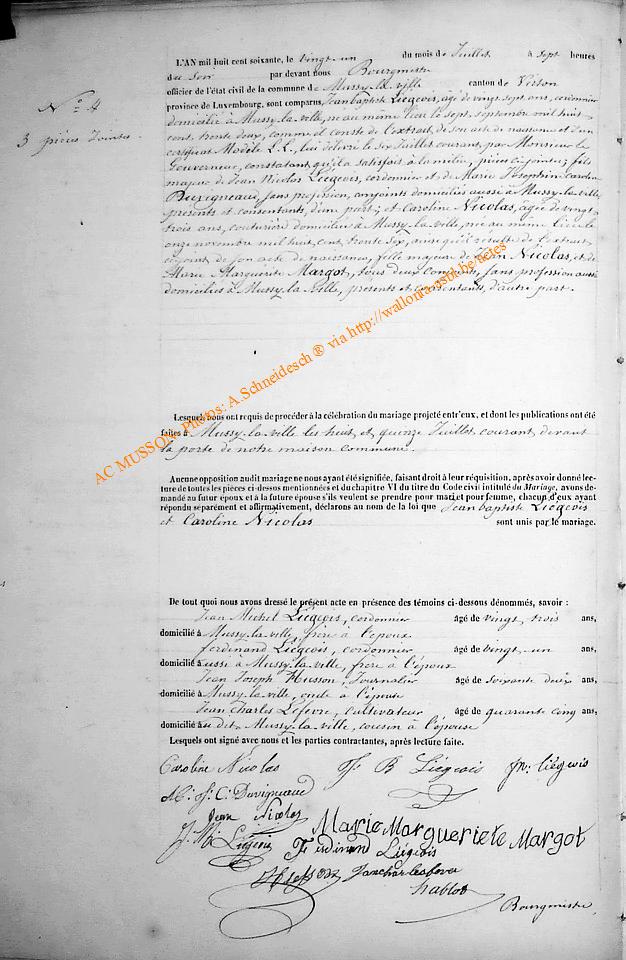 L'AN mil huit cent soixante, le vingt-un du mois de Juillet à sept heures
du soir par devant nous Bourgmestre
officier de l'état civil de la commune de Mussy-la-ville canton de Virton
province de Luxembourg, sont comparus, Jeanbaptiste Liégeois, âgé de vingt sept ans, cordonnier
domicilié à Mussy-la-ville, né au même lieu le sept septembre mil huit
N° 4
cent trente deux, comme il conste de l'extrait de son acte de naissance et d'un
3 pièces Jointes
certificat Modèle L.L. lui délivré le six Juillet courant par Monsieur le
Gouverneur, constatant qu'il a satisfait à la milice, pièces ci jointes; fils
majeur de Jean Nicolas Liégeois, cordonnier et de Marie Josephine Caroline
Duvigneaud, sans profession, conjoints domiciliés aussi à Mussy-la-ville,
présents et consentants, d'une part; et Caroline Nicolas, âgée de vingt-
trois ans, couturière domiciliée à Mussy-la-ville, née au même lieu le
onze novembre mil huit cent trente six, ainsi qu'il résulte de l'extrait
cijoint de son acte de naissance, fille majeure de Jean Nicolas, et de
Marie Marguerite Margot, tous deux conjoints, sans profession aussi
domiciliés à Mussy-la-ville, présents et consentants, d'autre part.
AC MUSSON Photos: A.Schneidesch ® via http://wallonia.asti.be/actes
Lesquels nous ont requis de procéder à la célébration du mariage projeté entr'eux, et dont les publications ont été
faites à Mussy-la-ville les huit et quinze Juillet courant devant
la porte de notre maison commune.
Aucune opposition audit mariage ne nous ayant été signifiée, faisant droit à leur réquisition, après avoir donné lec-
ture de toutes les pièces ci-dessus mentionnées et du chapitre VI du titre du Code civil intitulé du Mariage, avons de-
mandé au futur époux et à la future épouse s'ils veulent se prendre pour mari et pour femme, chacun d'eux ayant
répondu séparément et affirmativement, déclarons au nom de la loi que Jeanbaptiste Liégeois
et Caroline Nicolas sont unis par le mariage.
De tout quoi nous avons dressé le présent acte en présence des témoins ci-dessous dénommés, savoir :
Jean Michel Liégeois, cordonnier âgé de vingt trois ans,
domicilié à Mussy-la-ville, frère à l'époux
ferdinand Liégeois, cordonnier âgé de vingt-un ans,
domicilié aussi à Mussy-la-ville, frère à l'époux
Jean Joseph Husson, Journalier âgé de soixante deux ans,
domicilié à Mussy-la-ville, oncle à l'épouse
Jean Charles Lefevre, cultivateur âgé de quarante cinq ans,
domicilié au dit Mussy-la-ville, cousin à l'épouse
Lesquels ont signé avec nous et les parties contractantes, après lecture faite.
Caroline Nicolas J B Liégeois Jn. liégeois
M. J. C. Duvigneaud
Jean Nicolas
Marie Margueriete Margot
J. M. Liégeois Ferdinand Liégeois
Bourgmestre